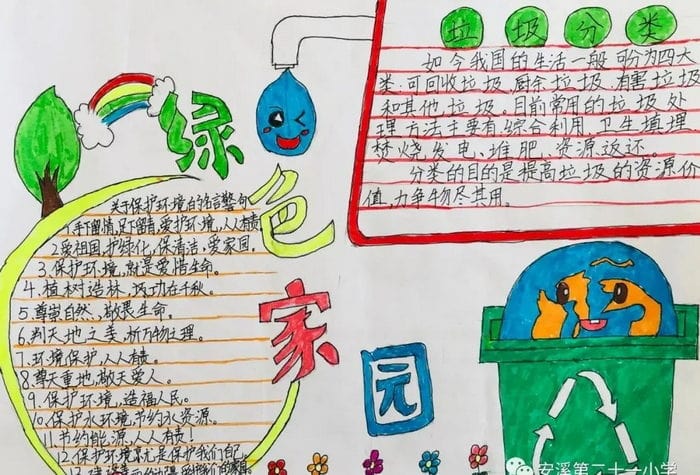 绿色家园
垃圾分类
如今我国的生活一般可分为四大
类.可回收垃圾.厨余垃圾.有害垃圾
和其他垃圾.目前常用的垃圾处
理方法主要有.综合利用.卫生填埋
焚烧发电、堆肥、资源返还。
分类的目的是提高垃圾的资源价
值,力争物尽其用。
关于保护环境的名言警句
1.手下留情,足下留青,爱护环境,人人有责
2.爱祖国,护绿化,保清洁,爱家园。
3.保护环境,就是爱惜生命。
4.植树造林,议功在千秋。
5.尊宝自然,敬畏生命。
6.判天地之美,析万物之理。
7.环境保护,人人有责。
8.尊天重地,敬天爱人。
9.保护环境,造福人民。
10.保护水环境,节约水资源。
11.节约能源,人人有责!
12.保护环境就是保护我们自己
安溪第二十一小学